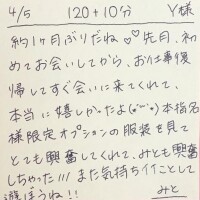 4/5 120+10分 Y様
約1ヶ月ぶりだね♡♡先月、初
めてお会いしてから、お仕事復
帰してすぐ会いに来てくれて、
本当に嬉しかったよ(*˘︶˘*)本指名
様限定オプションの服装を見て
とても興奮してくれて、みとも興奮
しちゃった///また気持ちイイことして
遊ぼうね!!
みと